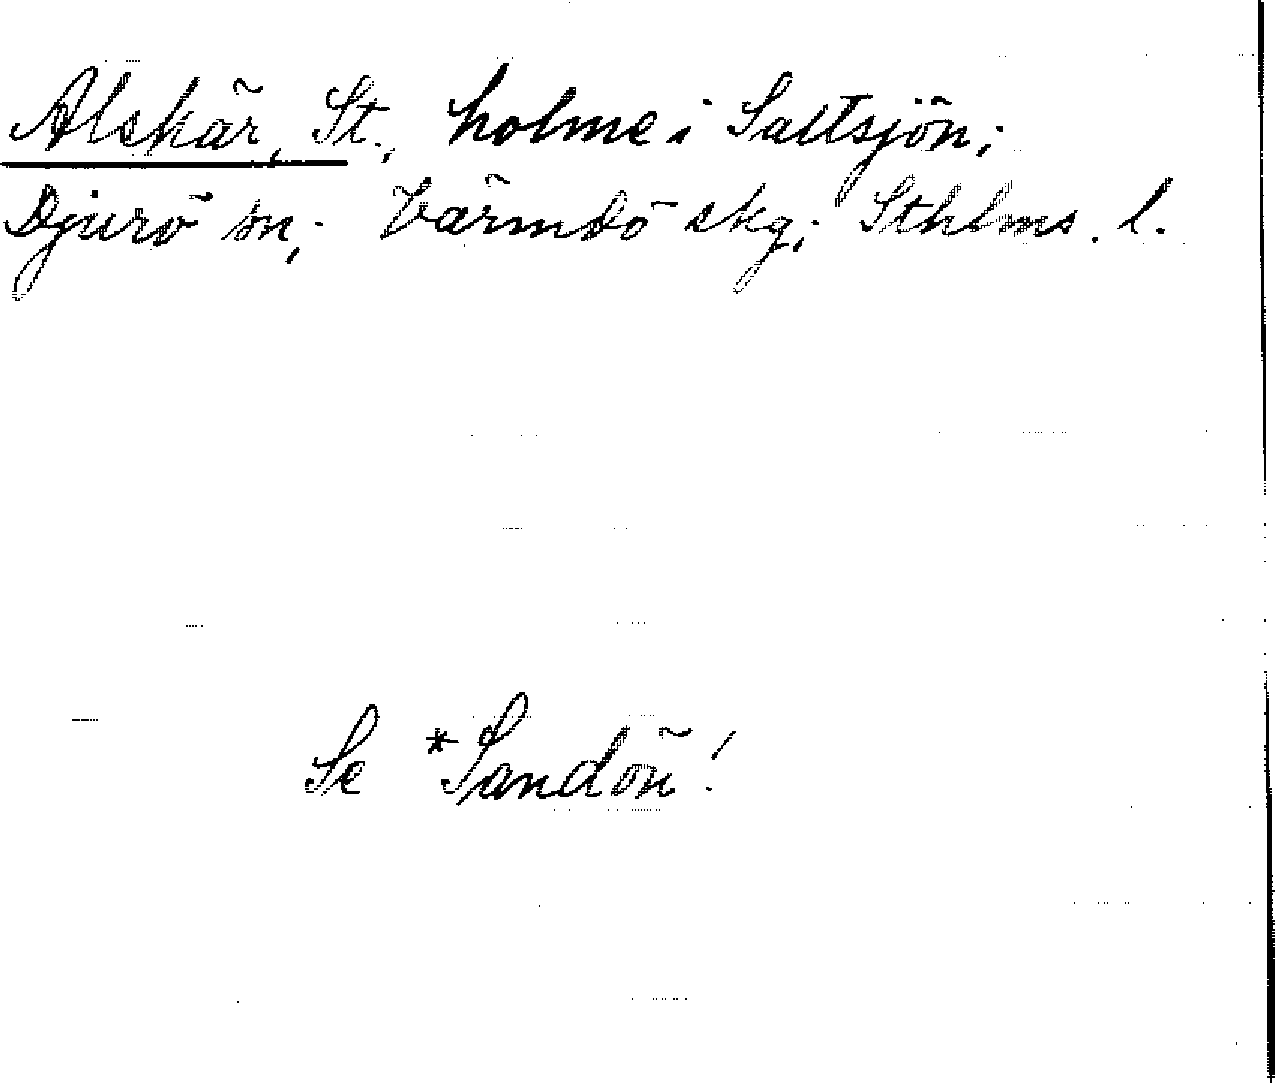 Alskär, St., holme i Saltsjön;
Djurö sn; Värmdö skg; Sthlms. l.
Se *Sandön!